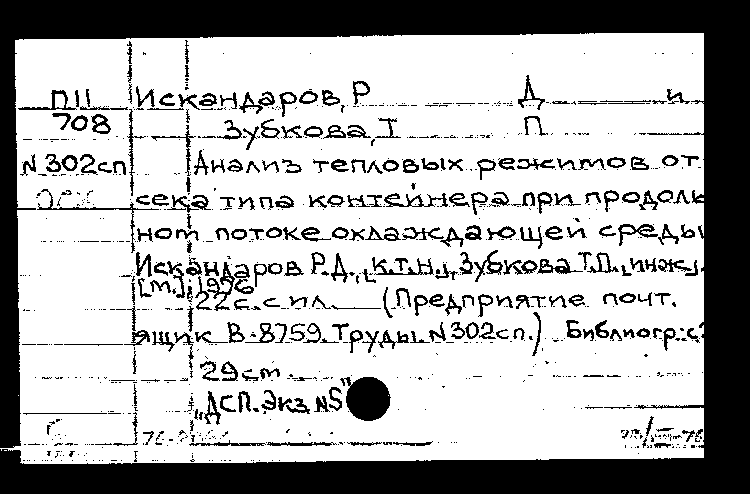 П11 Искандаров, Р Д и
708 Зубкова, Т П
N 302сп Анализ тепловых режимов от
сека типа контейнера при продоль
ном потоке охлаждающей среды
Искандаров Р.Д., [к.т.н.], Зубкова Т.П., [инж].
[М.], 1976
22с. с ил. (Предприятие почт.
ящик В-8759. Труды. N302сп.) Библиогр.: с
29см.
"ДСП. Экз. N5"